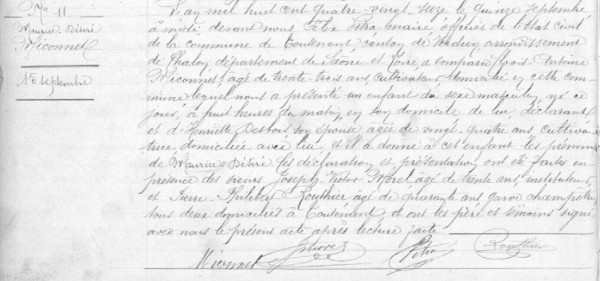 No 11
Maurice Désiré
Miconnet
15 septembre
L'an mil huit cent quatre vingt seize le quinze septembre
à midi, devant nous Félix Pitra maire, officier de l'état civil
de la commune de Toutenant canton de Verdun arrondissement
de Chalon département de Saône et Loire, a comparu François Antoine
Miconnet, âgé de trente trois ans cultivateur domicilié en cette com-
mune lequel nous a présenté un enfant du sexe masculin, né ce
jour, à huit heures du matin, en son domicile de lui, déclarant
et d'Henriette Desbois son épouse âgée de vingt quatre ans cultiva-
trice domiciliée avec lui, et il a donné à cet enfant les prénoms
de Maurice Désiré. Les déclaration et présentation ont été faites en
présence des sieurs Joseph Victor Morel âgé de trente ans, instituteur,
et Pierre Philibert Routhier âgé de quarante ans garde champêtre,
tous deux domiciliés à Toutenant, et ont les père et témoins signé
avec nous le présent acte après lecture faite
Miconnet Morel Pitra Routhier